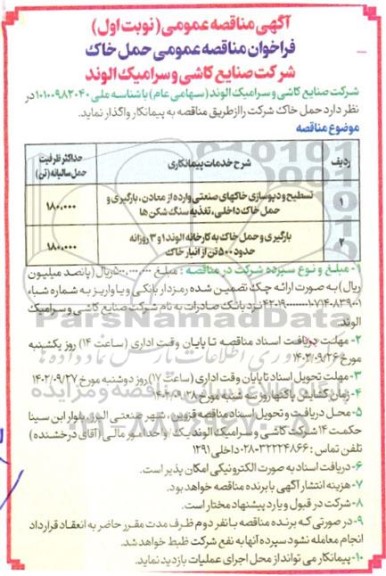 آگهی مناقصه عمومی (نوبت اول)
فراخوان مناقصه عمومی حمل خاک
شرکت صنایع کاشی و سرامیک الوند
شرکت صنایع کاشی و سرامیک الوند (سهامی عام) با شناسه ملی ۱۰۱۰۰۹۸۳۰۴۰ در
نظر دارد حمل خاک شرکت را از طریق مناقصه به پیمانکار واگذار نماید.
موضوع مناقصه
ردیف شرح خدمات پیمانکاری حداکثر ظرفیت حمل سالیانه (تن)
۱ تسطیح و دپوسازی خاکهای صنعتی وارده از معادن، بارگیری و
حمل خاک داخلی، تغذیه سنگ شکن ها ۱۸۰,۰۰۰
۲ بارگیری و حمل خاک به کارخانه الوند ۱ و ۳ روزانه
حدود ۵۰۰ تن از انبار خاک ۱۸۰,۰۰۰
۱- مبلغ و نوع سپرده شرکت در مناقصه : مبلغ ۵۰۰,۰۰۰,۰۰۰ ریال (پانصد میلیون
ریال) به صورت ارائه چک تضمین شده رمزدار بانکی و یا واریز به شماره شبا
نزد بانک صادرات به نام شرکت صنایع کاشی و سرامیک
الوند.
۲- مهلت دریافت اسناد مناقصه تا پایان وقت اداری (ساعت ۱۴) روز یکشنبه
مورخ ۱۴۰۲/۰۹/۲۶
۳- مهلت تحویل اسناد تا پایان وقت اداری (ساعت ۱۷) روز دوشنبه مورخ ۱۴۰۲/۰۹/۲۷
۴- زمان گشایش پاکتها روز سه شنبه مورخ ۱۴۰۲/۰۹/۲۸
۵- محل دریافت و تحویل اسناد مناقصه قزوین، شهر صنعتی البرز، بلوار ابن سینا
حکمت ۱۴ شرکت کاشی و سرامیک الوند یک واحد امور مالی (آقای درخشنده)
تلفن تماس : ۰۲۸۳۲۲۲۴۸۶۶ داخلی ۱۲۹۱
۶- دریافت اسناد به صورت الکترونیکی امکان پذیر است.
۷- هزینه انتشار آگهی با برنده مناقصه خواهد بود.
۸- شرکت در قبول و یا رد پیشنهاد مختار است.
۹- در صورتی که برنده مناقصه یا نفر دوم ظرف مدت مقرر حاضر به انعقاد قرارداد
انجام معامله نشود سپرده آنها به نفع شرکت ظبط خواهد شد.
۱۰- پیمانکار می تواند از محل اجرای عملیات بازدید نماید.
ParsNamadData